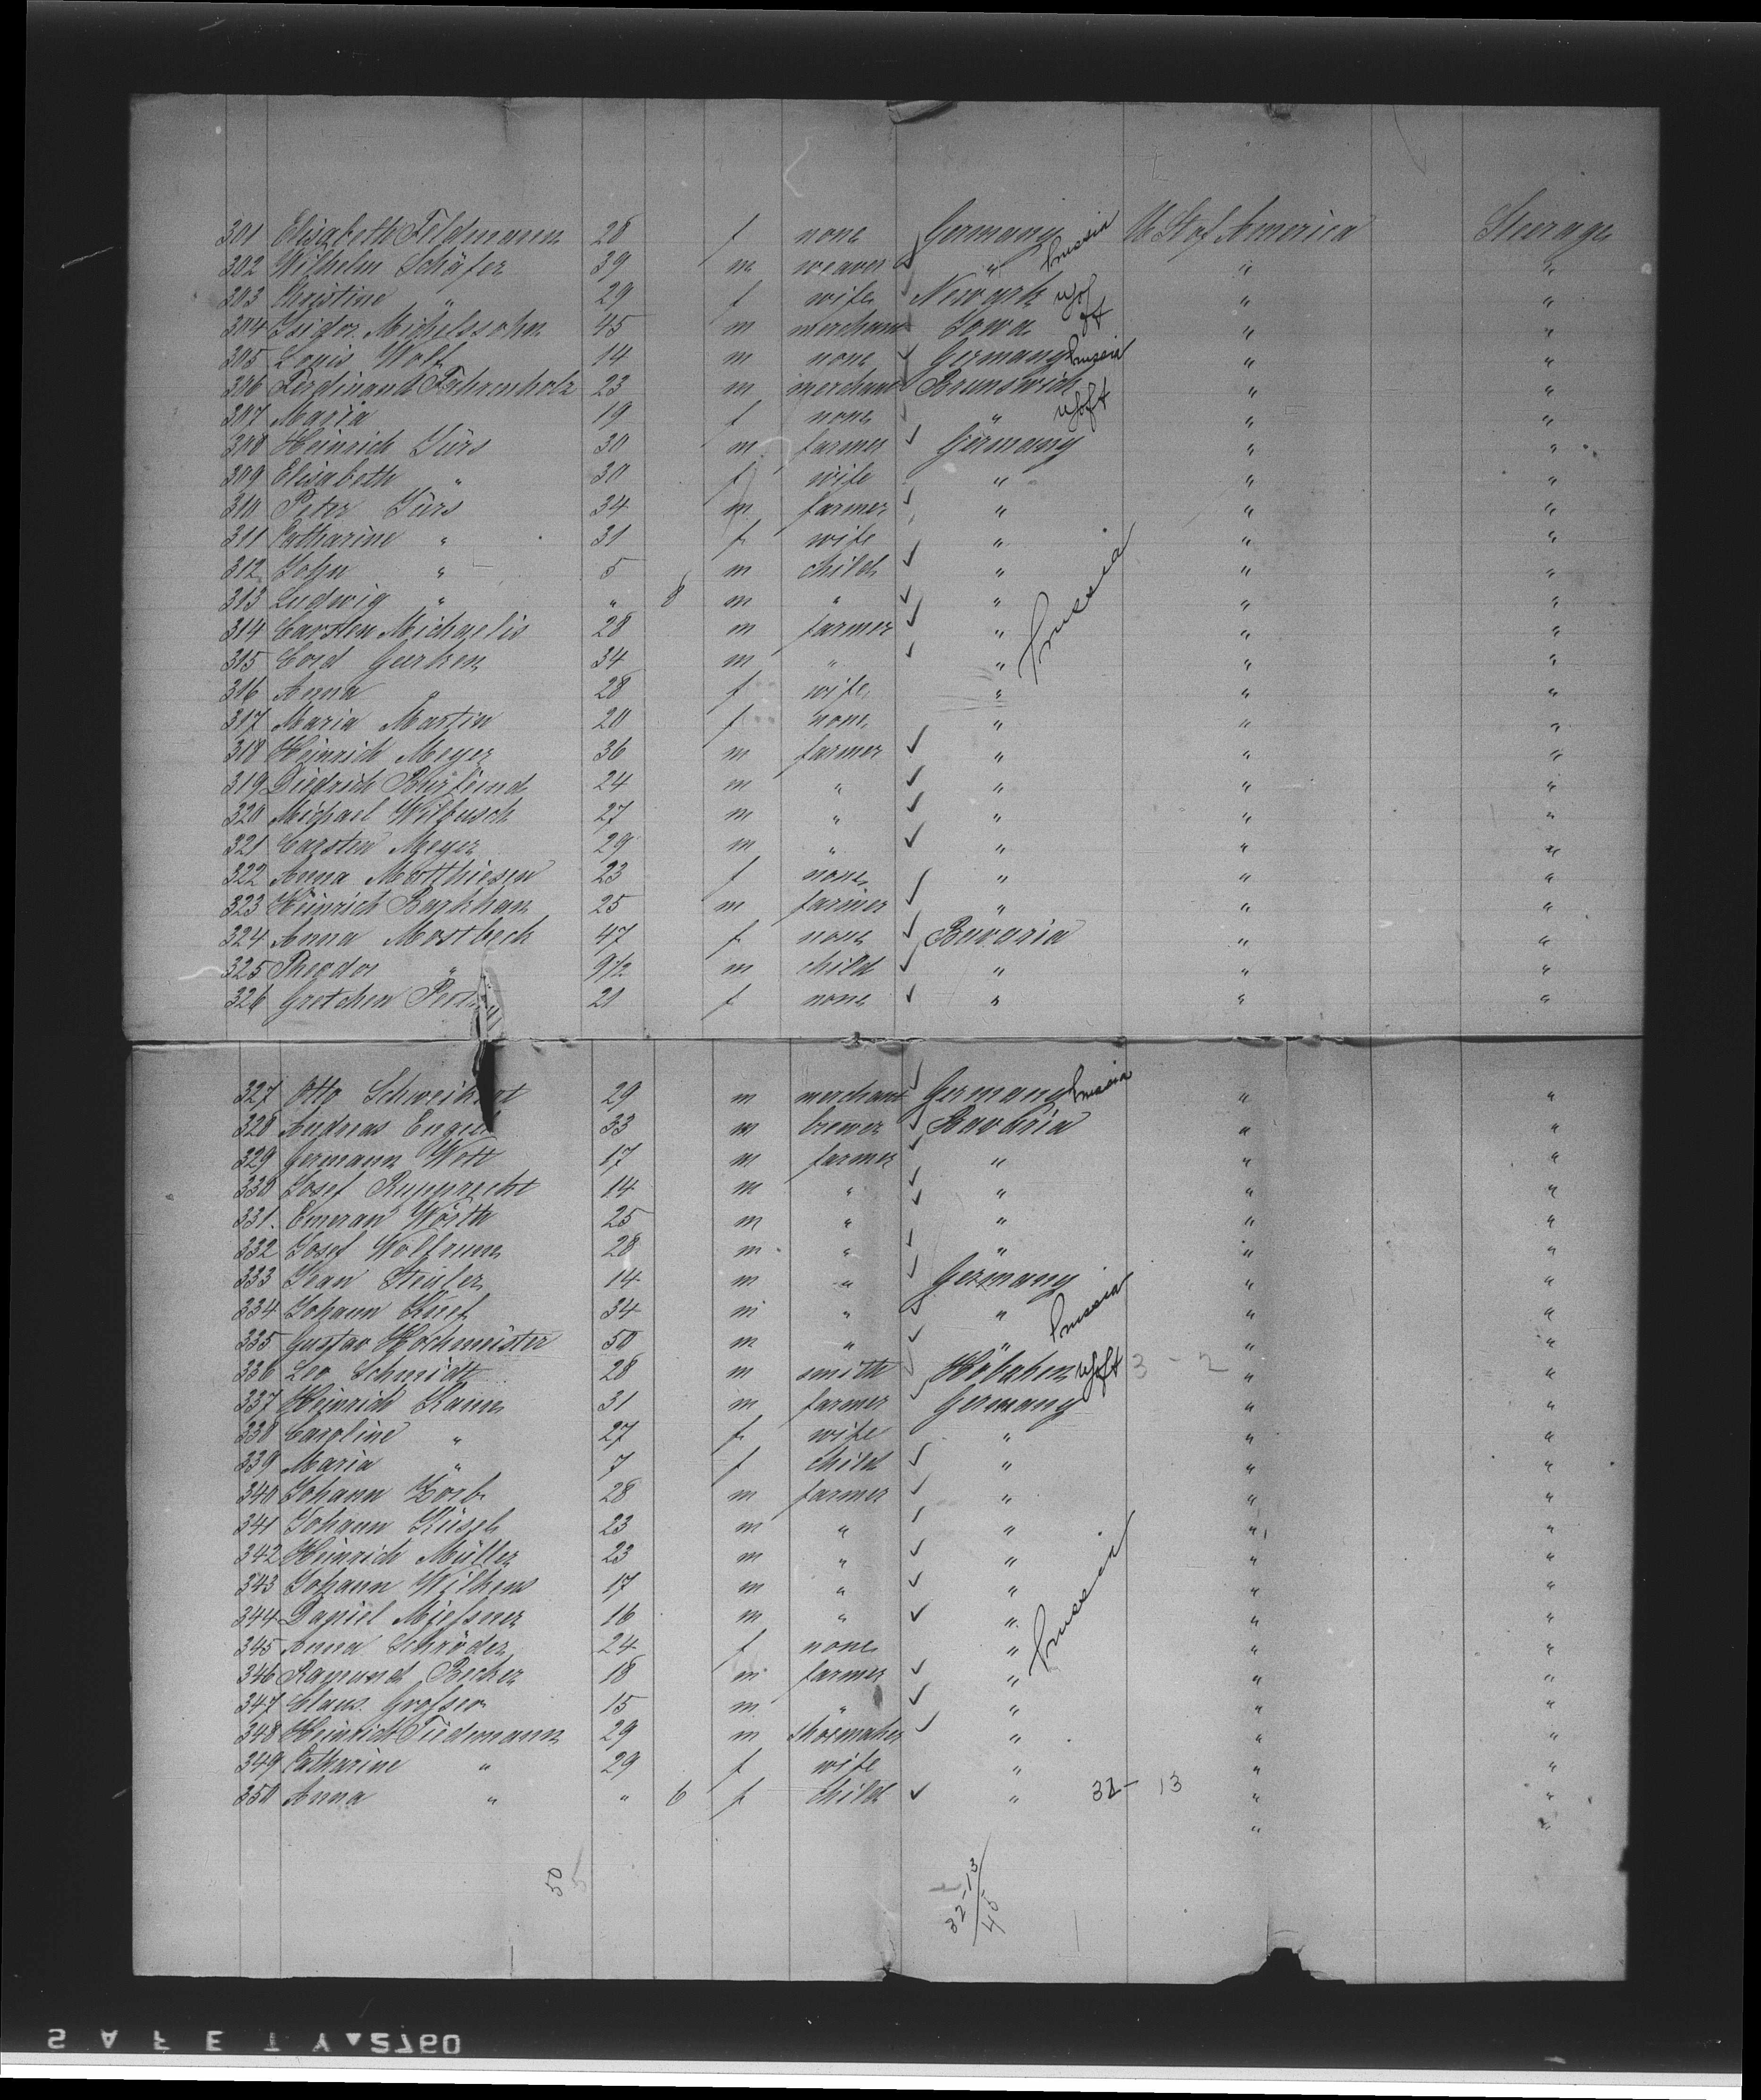 301 Elisabeth Feldmann 28 f none Germany Prussia U St of America Steerage
302 Wilhelm Schäfer 39 m weaver " " "
303 Christine " 29 f wife Newyork U S of A " "
304 Isidor Michelssohn 45 m merchant Iowa " "
305 Louis Wolf 14 m none Germany Prussia " "
306 Ferdinand Fehrenholz 23 m merchant Brunswick " "
307 Maria 19 f none " U S of A " "
308 Heinrich Jürs 30 m farmer Germany " "
309 Elisabeth " 30 f wife " " "
310 Peter Jürs 34 m farmer " " "
311 Catharine " 31 f wife " " "
312 John " 5 m child " " "
313 Ludwig " " 8 m " " Prussia " "
314 Carsten Michaelis 28 m farmer " " "
315 Cord Gerken 34 m " " " "
316 Anna " 28 f wife " " "
317 Maria Martin 20 f none " " "
318 Heinrich Meyer 36 m farmer " " "
319 Diedrich Burfeind 24 m " " " "
320 Michael Wilbusch 27 m " " " "
321 Carsten Meyer 29 m " " " "
322 Anna Matthiesen 23 f none " " "
323 Heinrich Barkhan 25 m farmer " " "
324 Anna Mostbeck 47 f none Bavaria " "
325 Theodor " 9 1/2 m child " " "
326 Gretchen 21 f none " " "
327 Otto 29 m merchant Germany Prussia " "
328 Andreas 33 m brewer Bavaria " "
329 Germann Wott 17 m farmer " " "
330 Josef Rupprecht 14 m " " " "
331. Emeran Wörth 25 m " " " "
332 Josef Wolfrum 28 m " " " "
333 Jean 14 m " Germany " "
334 Johann 34 m " " Prussia " "
335 Gustav Hochmeister 50 m " " " "
336 Leo Schmidt 28 m smith Hoboken U S of A 3 - 2 " "
337 Heinrich 31 m farmer Germany " "
338 Caroline " 27 f wife " " "
339 Maria " 7 f child " " "
340 Johann Zorb 28 m farmer " " "
341 Johann 23 m " " " "
342 Heinrich Müller 23 m " " " "
343 Johann Wilkens 17 m " " " "
344 Daniel 16 m " " Prussia " "
345 Anna Schröder 24 f none " " "
346 Raymund Becker 18 m farmer " " "
347 Claus 15 m " " " "
348 Heinrich Tiedemann 29 m Shoemaker " " "
349 Catharine " 29 f wife " " "
350 Anna " " 6 f child " 32 - 13 " "
" "
50
5
32-13
45
SAFETY▲2760